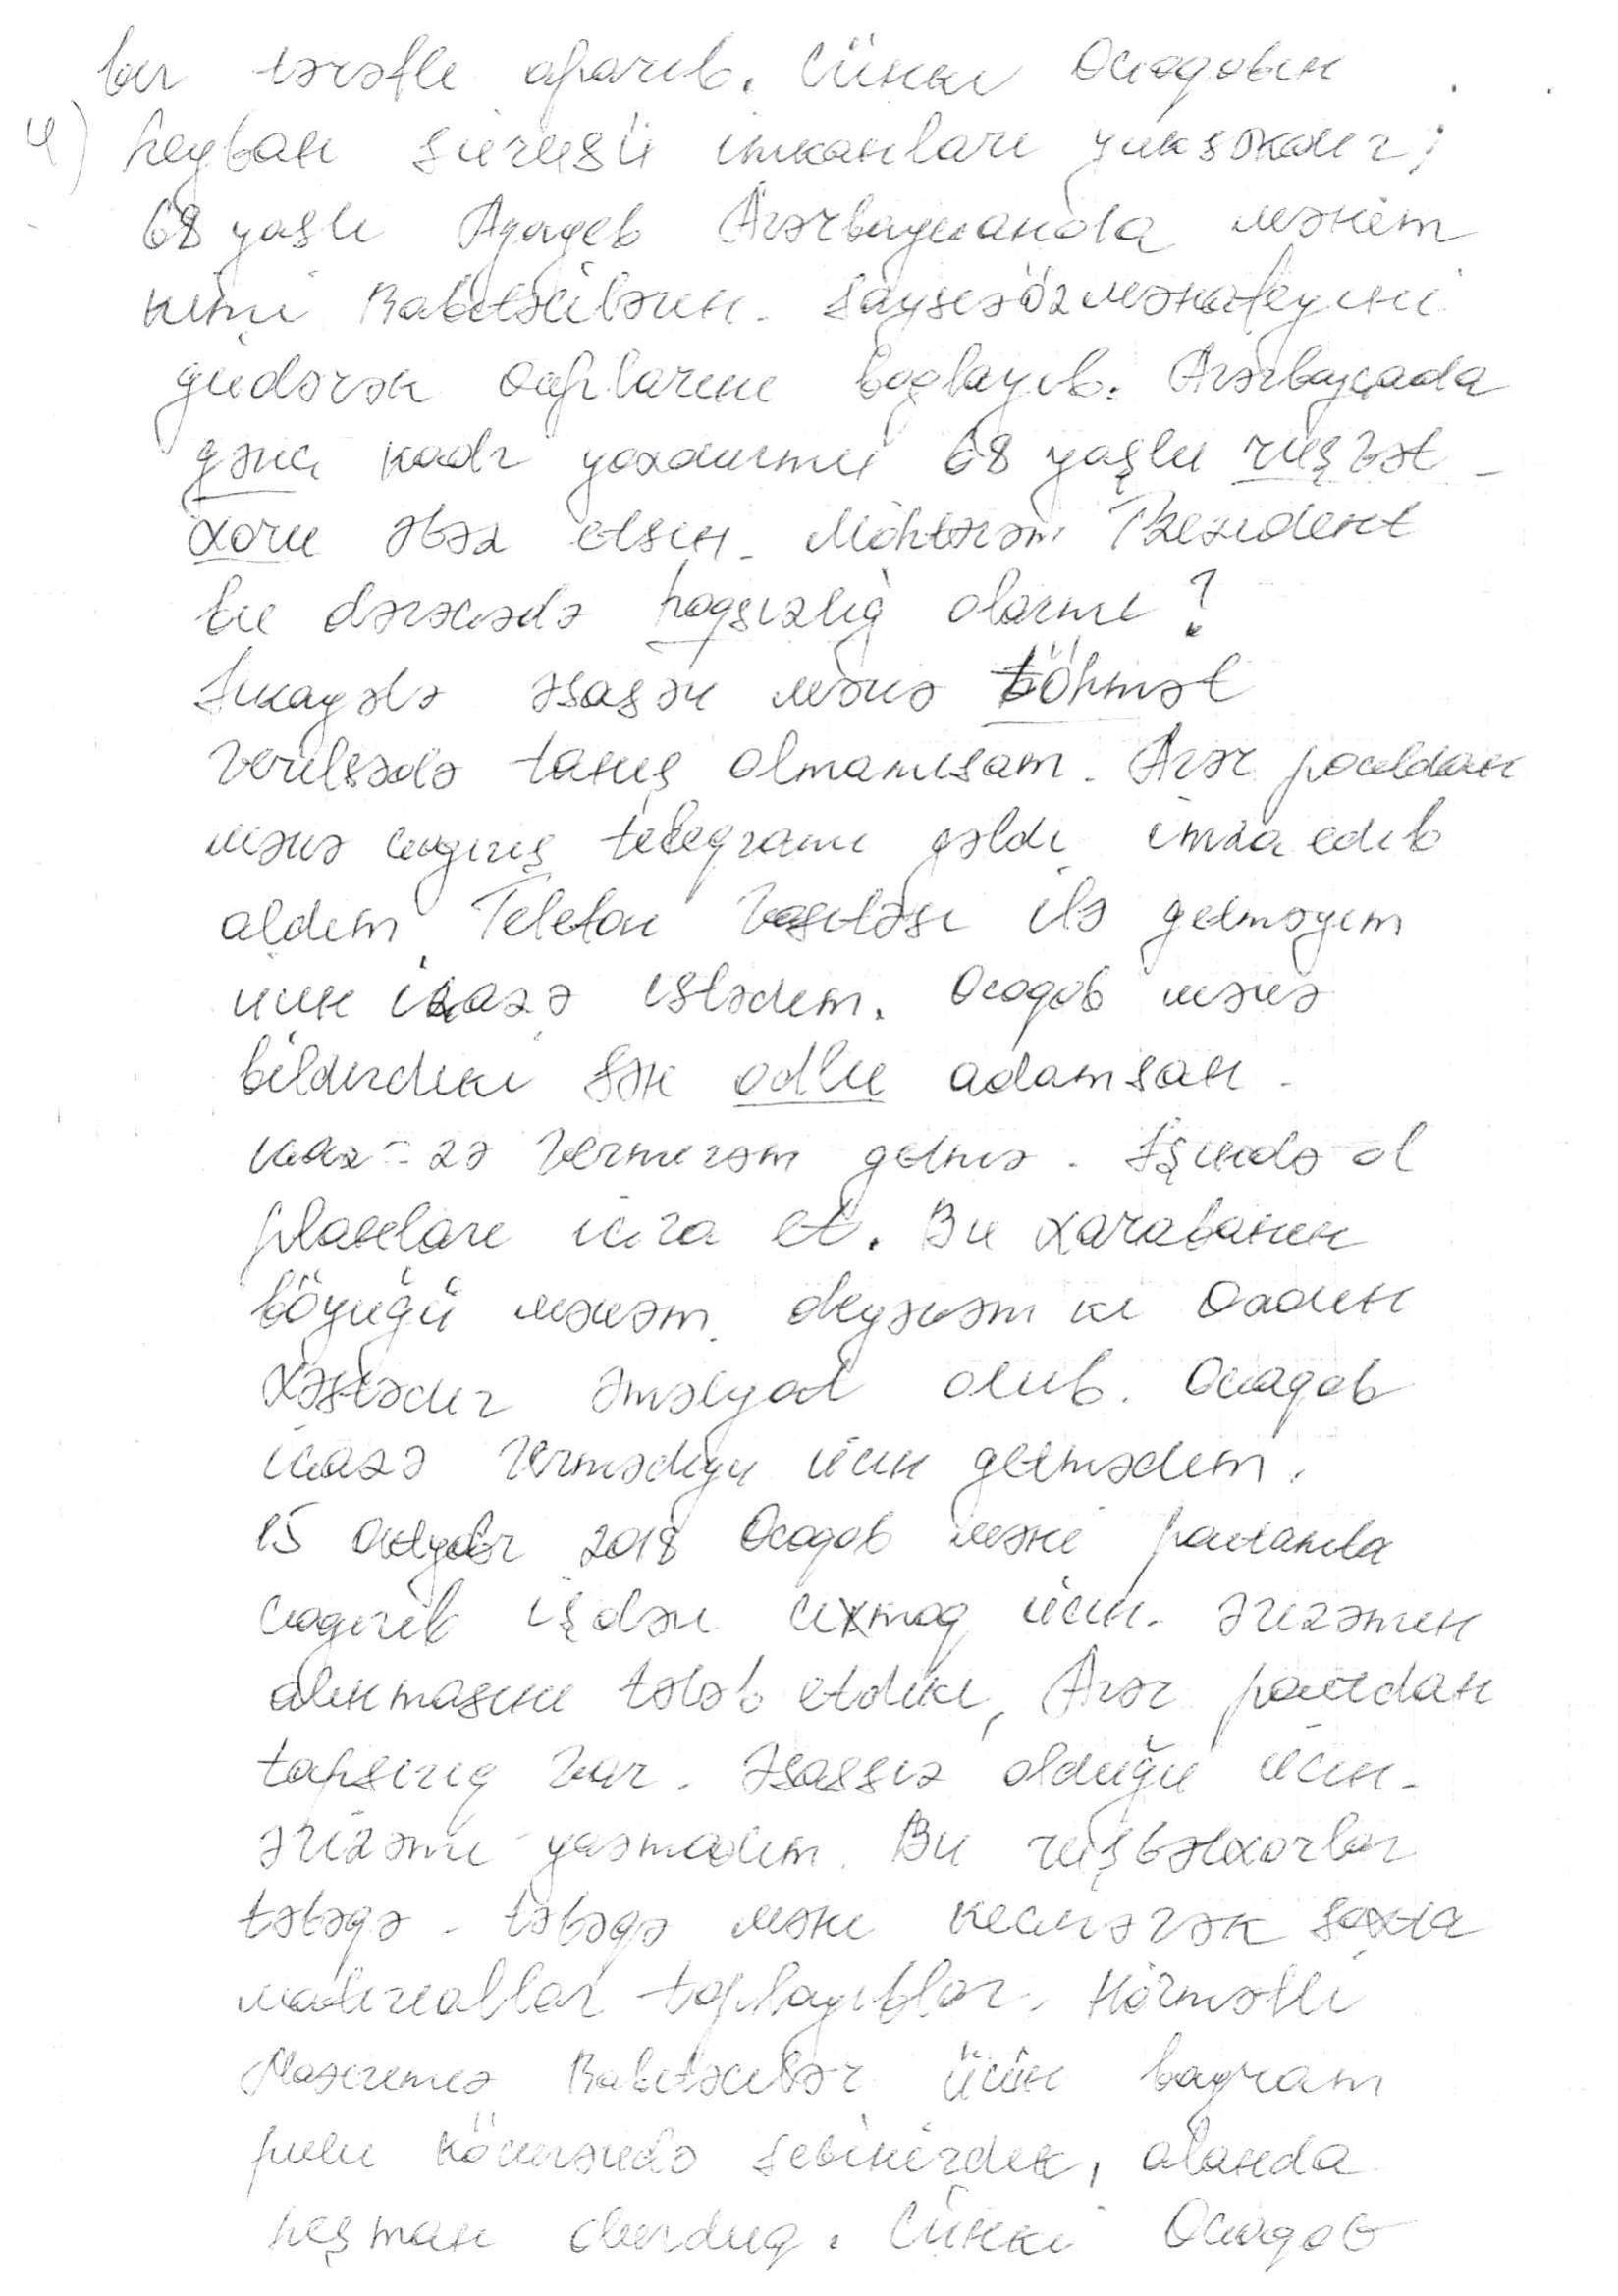 bir tərəfli aparıb. Çünki Ocaqovun
4) heyvan sürüsü imkanları yüksəkdir;
68 yaşlı Aqayev Azərbaycanda mənim
kimi Rabitəçilərin. saysız öz mənafeyini
güdərək qapılarını bağlayıb. Azərbaycada
gənc kadr yoxdurmu 68 yaşlı rüşvət-
xoru əvəz etsin. Möhtərəm Prezident
bu dərəcədə haqsızlıq olarmı?
Şikayətə əsasən mənə töhmət
verilsədə tanış olmamışam. Azər poçtdan
mənə çağırış teleqramı gəldi imza edib
aldım. Telefon vasitəsi ilə getməyim
üçün icazə istədim. Ocaqov mənə
bildirdiki sən odlu adamsan.
icaz-zə vermirəm getmə. İşində ol
planları icra et. Bu xarabanın
böyüğü mənəm. deyirəm ki
xəstədir əməlyat olub. Ocaqov
icazə vermədiyi üçün getmədim.
15 oktyabr 2018 Ocaqov məni poçtamta
çağırıb işdən çıxmaq üçün. ərizəmin
alınmasını tələb etdiki, Azər poçtdan
tapşırıq var. Əsassız olduğu üçün.
ərizəmi yazmadım. Bu rüşvətxorlar
təbəqə - təbəqə məni keçirərək saxta
materiallar toplayıblar. Hörmətli
Rabitəçilər üçün bayram
pulu köçürəndə sevinirdik, alanda
peşman olurduq. Çünki Ocaqov